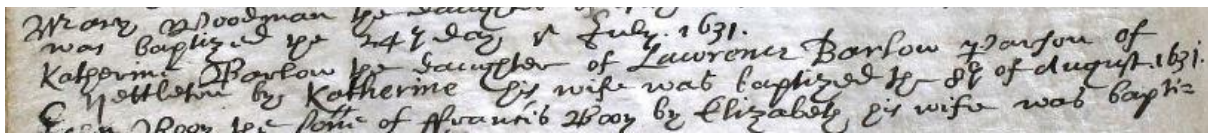 Mary Woodman the daughter of
was baptized the 24th day of July. 1631.
Katherine Barlow the daughter of Lawrence Barlow Parson of
Nettleton by Katherine his wife was baptized the 8th of August. 1631.
the sonne of ffrancis Booy by Elizabeth his wife was bapti=